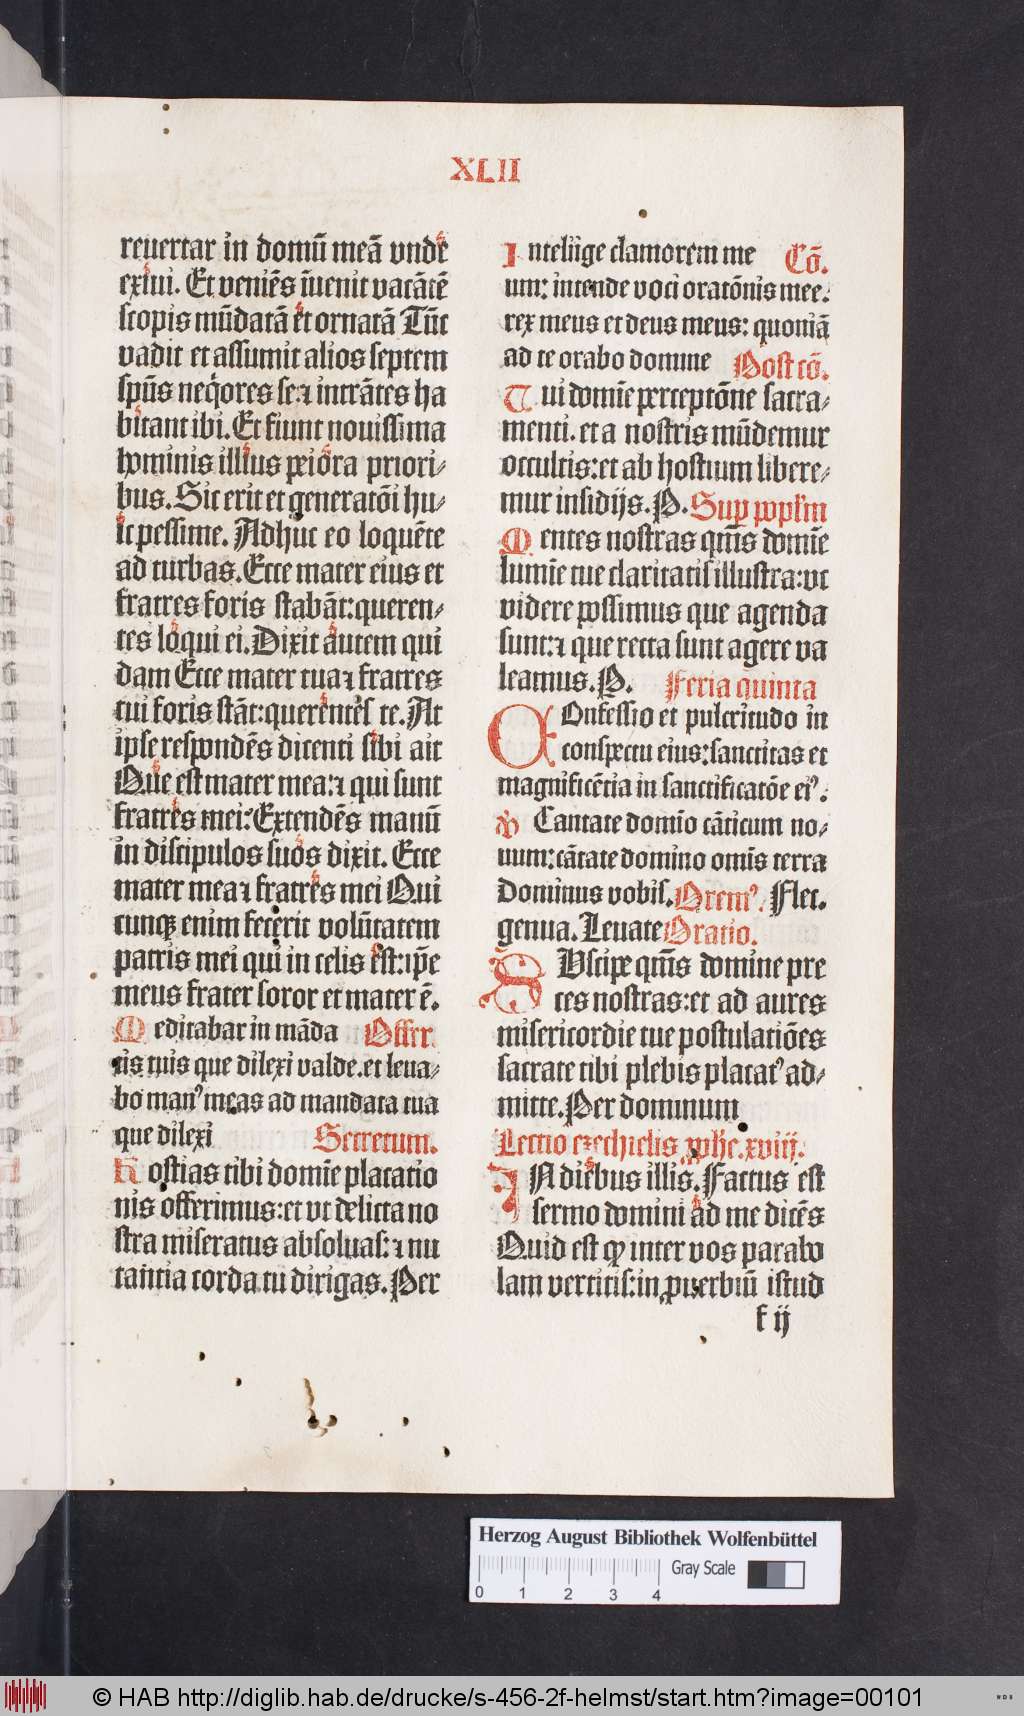 XLII
reuertar in domū meā vnde
exiui. Et veniēs īuenit vacātē
scopis mūdatā et ornatā Tūc
vadit et assumit alios septem
spūs neq̄ores se:⁊ intrātes ha
bitant ibi. Et fiunt nouissima
hominis illius peiora priori⸗
bus. Sic erit et generatōi hu⸗
ic pessime. Adhuc eo loquēte
ad turbas. Ecce mater eius et
fratres foris stabāt:queren⸗
tes loqui ei. Dixit autem qui
dam Ecce mater tua ⁊ fratres
tui foris stāt:querentes te. At
ipse respondēs dicenti sibi ait
Que est mater mea:⁊ qui sunt
fratres mei: Extendēs manū
in discipulos suos dixit. Ecce
mater mea ⁊ fratres mei Qui
cunqꝫ enim fecerit volūtatem
patris mei qui in celis est:ip̄e
meus frater soror et mater ē.
Meditabar in māda Offer.
tis tuis que dilexi valde. et leua⸗
bo manꝰ meas ad mandata tua
que dilexi Secretum.
Hostias tibi domīe placatio
nis offerimus:et vt delicta no
stra miseratus absoluas: ⁊ nu
tantia corda tu dirigas. Per
Intellige clamorem me Cō.
um: intende voci oratōnis mee:
rex meus et deus meus: quoniā
ad te orabo domine Post cō.
Tui domīe perceptōne sacra⸗
menti. et a nostris mūdemur
occultis:et ab hostium libere⸗
mur insidijs. P. Sup popl'm
Mentes nostras qm̄s domīe
lumīe tue claritatis illustra:vt
videre possimus que agenda
sunt:⁊ que recta sunt agere va
leamus. P. Feria quinta
COnfessio et pulcritudo in
conspectu eius:sanctitas et
magnificētia in sanctificatōe eiꝰ:
℣ Cantate domīo cāticum no⸗
uum:cātate domino omīs terra
Dominus vobis. Oremꝰ. Flec.
genua. Leuate Oratio.
SUscipe qm̄s domine pre
ces nostras:et ad aures
misericordie tue postulatiōes
sacrate tibi plebis placatꝰ ad⸗
mitte. Per dominum
Lectio ezechielis ꝓphe. xviij.
IN diebus illis. Factus est
sermo domini ad me dicēs
Quid est ꝙ inter vos parabo
lam vertitis:in ꝓuerbiū istud
f ij
Herzog August Bibliothek Wolfenbüttel
Gray Scale
0 1 2 3 4
© HAB http://diglib.hab.de/drucke/s-456-2f-helmst/start.htm?image=00101